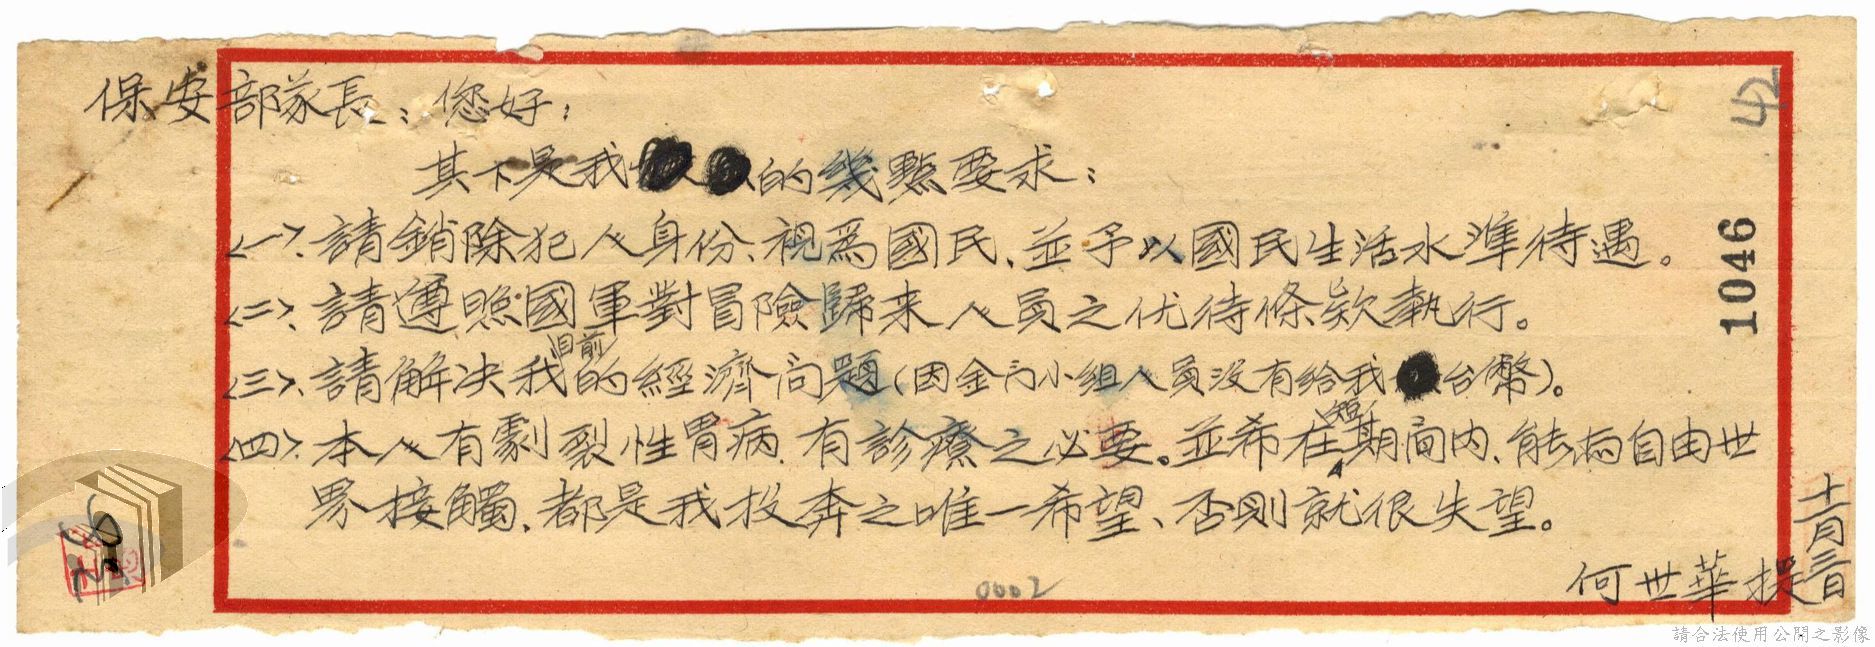 保安部隊長：您好：
其下是我的幾點要求：
<一>、請銷除犯人身份、視為國民、並予以國民生活水準待遇。
<二>、請遵照國軍對冒險歸来人員之优待條欵執行。
<三>、請解决我目前的經濟问題(因金门小組人員没有给我台幣)。
<四>、本人有劇裂性胃病、有診療之必要。並希在短期间内、能与自由世
界接觸、都是我投奔之唯一希望、否則就很失望。
何世華提
十一月三日
42
1046
0002
請合法使用公開之影像